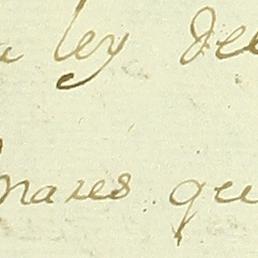 a ley de
nares que